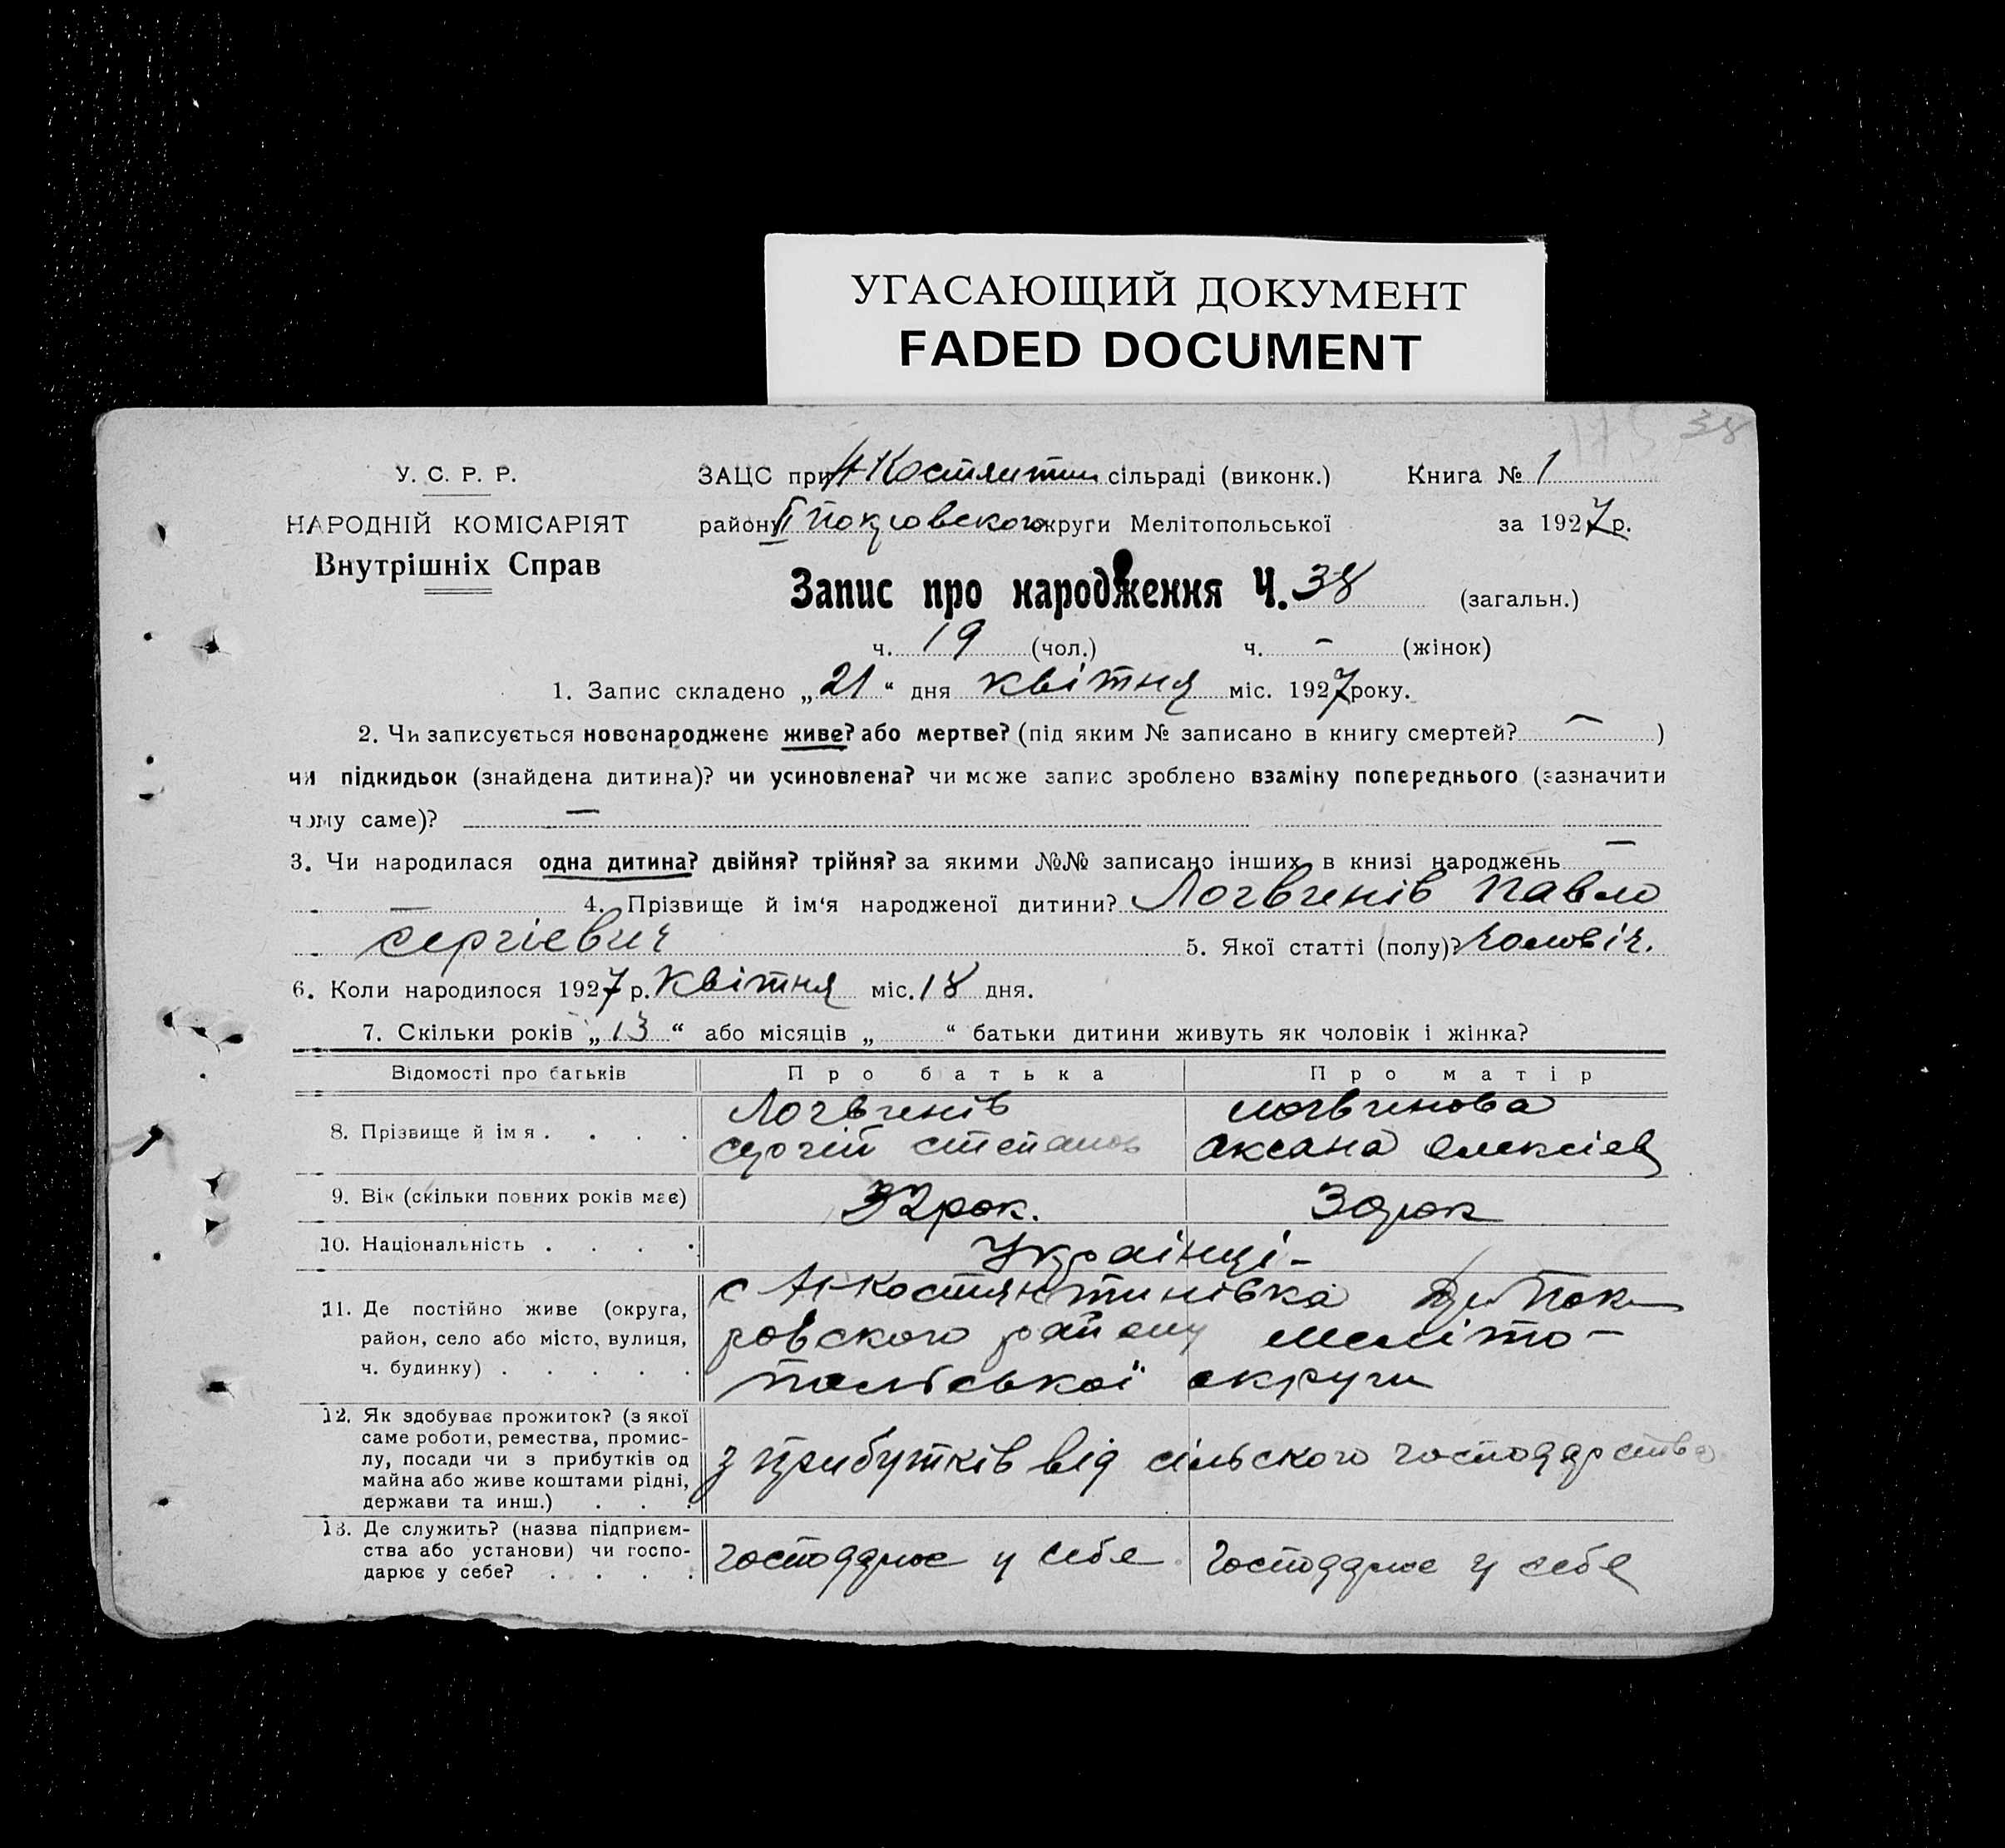 УГАСАЮЩИЙ ДОКУМЕНТ
FADED DOCUMENT
38
У. С. Р. Р.
НАРОДНІЙ КОМІСАРІЯТ
Внутрішніх Справ
ЗАЦС при Н-Костянтин сільраді (виконк.) Книга № 1
району II Покровского округи Мелітопольської за 1927 р.
Запис про народження Ч. 38 (загальн.)
ч. 19 (чол.) ч. – (жінок)
1. Запис складено „21“ дня квітня міс. 1927 року.
2. Чи записується новонароджене живе? або мертве? (під яким № записано в книгу смертей? — )
чи підкидьок (знайдена дитина)? чи усиновлена? чи може запис зроблено взаміну попереднього (зазначити
чому саме)? —
3. Чи народилася одна дитина? двійня? трійня? за якими №№ записано інших в книзі народжень —
— 4. Прізвище й ім‘я народженої дитини? Логвинів Павло
Сергієвич 5. Якої статті (полу)? чоловіч.
6. Коли народилося 1927 р. Квітня міс. 18 дня.
7. Скільки років „13“ або місяців „ “ батьки дитини живуть як чоловік і жінка?
Відомості про батьків Про батька Про матір
8. Прізвище й імя . . . . Логвинів Логвинова
Сергій Степанов Оксана Олексіев
9. Вік (скільки повних років має) 32 рок. 30 рок
10. Національність . . . . Українці –
11. Де постійно живе (округа, район, село або місто, вулиця, ч. будинку) . . . . . с Н-Костянтинівка Пок
ровского району Меліто–
польської округи
12. Як здобуває прожиток? (з якої
саме роботи, ремества, промис-
лу, посади чи з прибутків од
майна або живе коштами рідні,
держави та инш.) . . . з прибутків від сільского господарства
13. Де служить? (назва підприєм-
ства або установи) чи госпо-
дарює у себе? . . . . господарює у себе господарює у себе